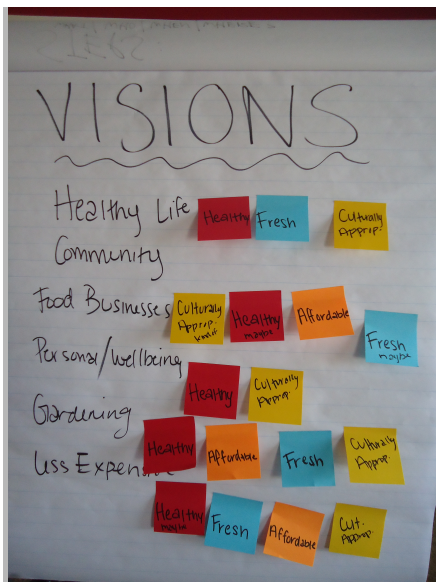 VISIONS
Healthy Life
Healthy
Fresh
Culturally
Approp.
Community
Food Businesses
Culturally
Approp.
Healthy
maybe
Affordable
Fresh
maybe
Personal/Wellbeing
Healthy
Culturally
Approp.
Gardening
Healthy
Affordable
Fresh
Culturally
Approp.
Less Expensive
Healthy
maybe
Fresh
Affordable
Cult.
Approp.